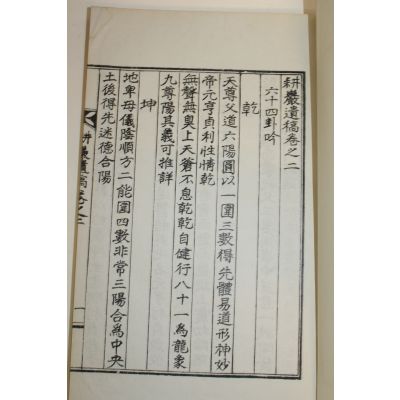 耕巖遺稿卷之二
六十四卦吟
乾
天尊父道六陽圓以一圍三數得先體易道形神妙
帝元亨貞利性情乾
無聲無臭上天蒼不息乾乾自健行八十一為龍象
九尊陽其義可推詳
坤
地卑母儀陰順方二能圍四數非常三陽合為中央
土後得先迷德合陽
耕巖遺稿卷之二
一